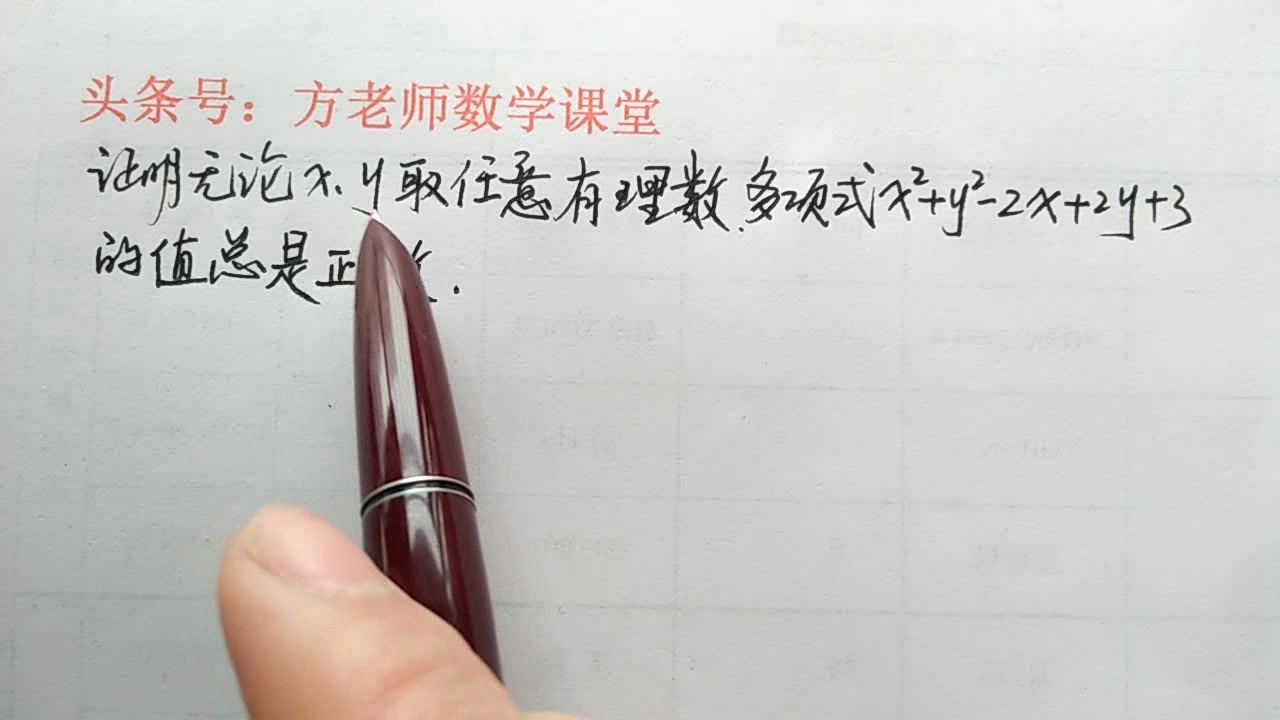 头条号：方老师数学课堂
证明无论x、y取任意有理数,多项式x²+y²-2x+2y+3
的值总是正.